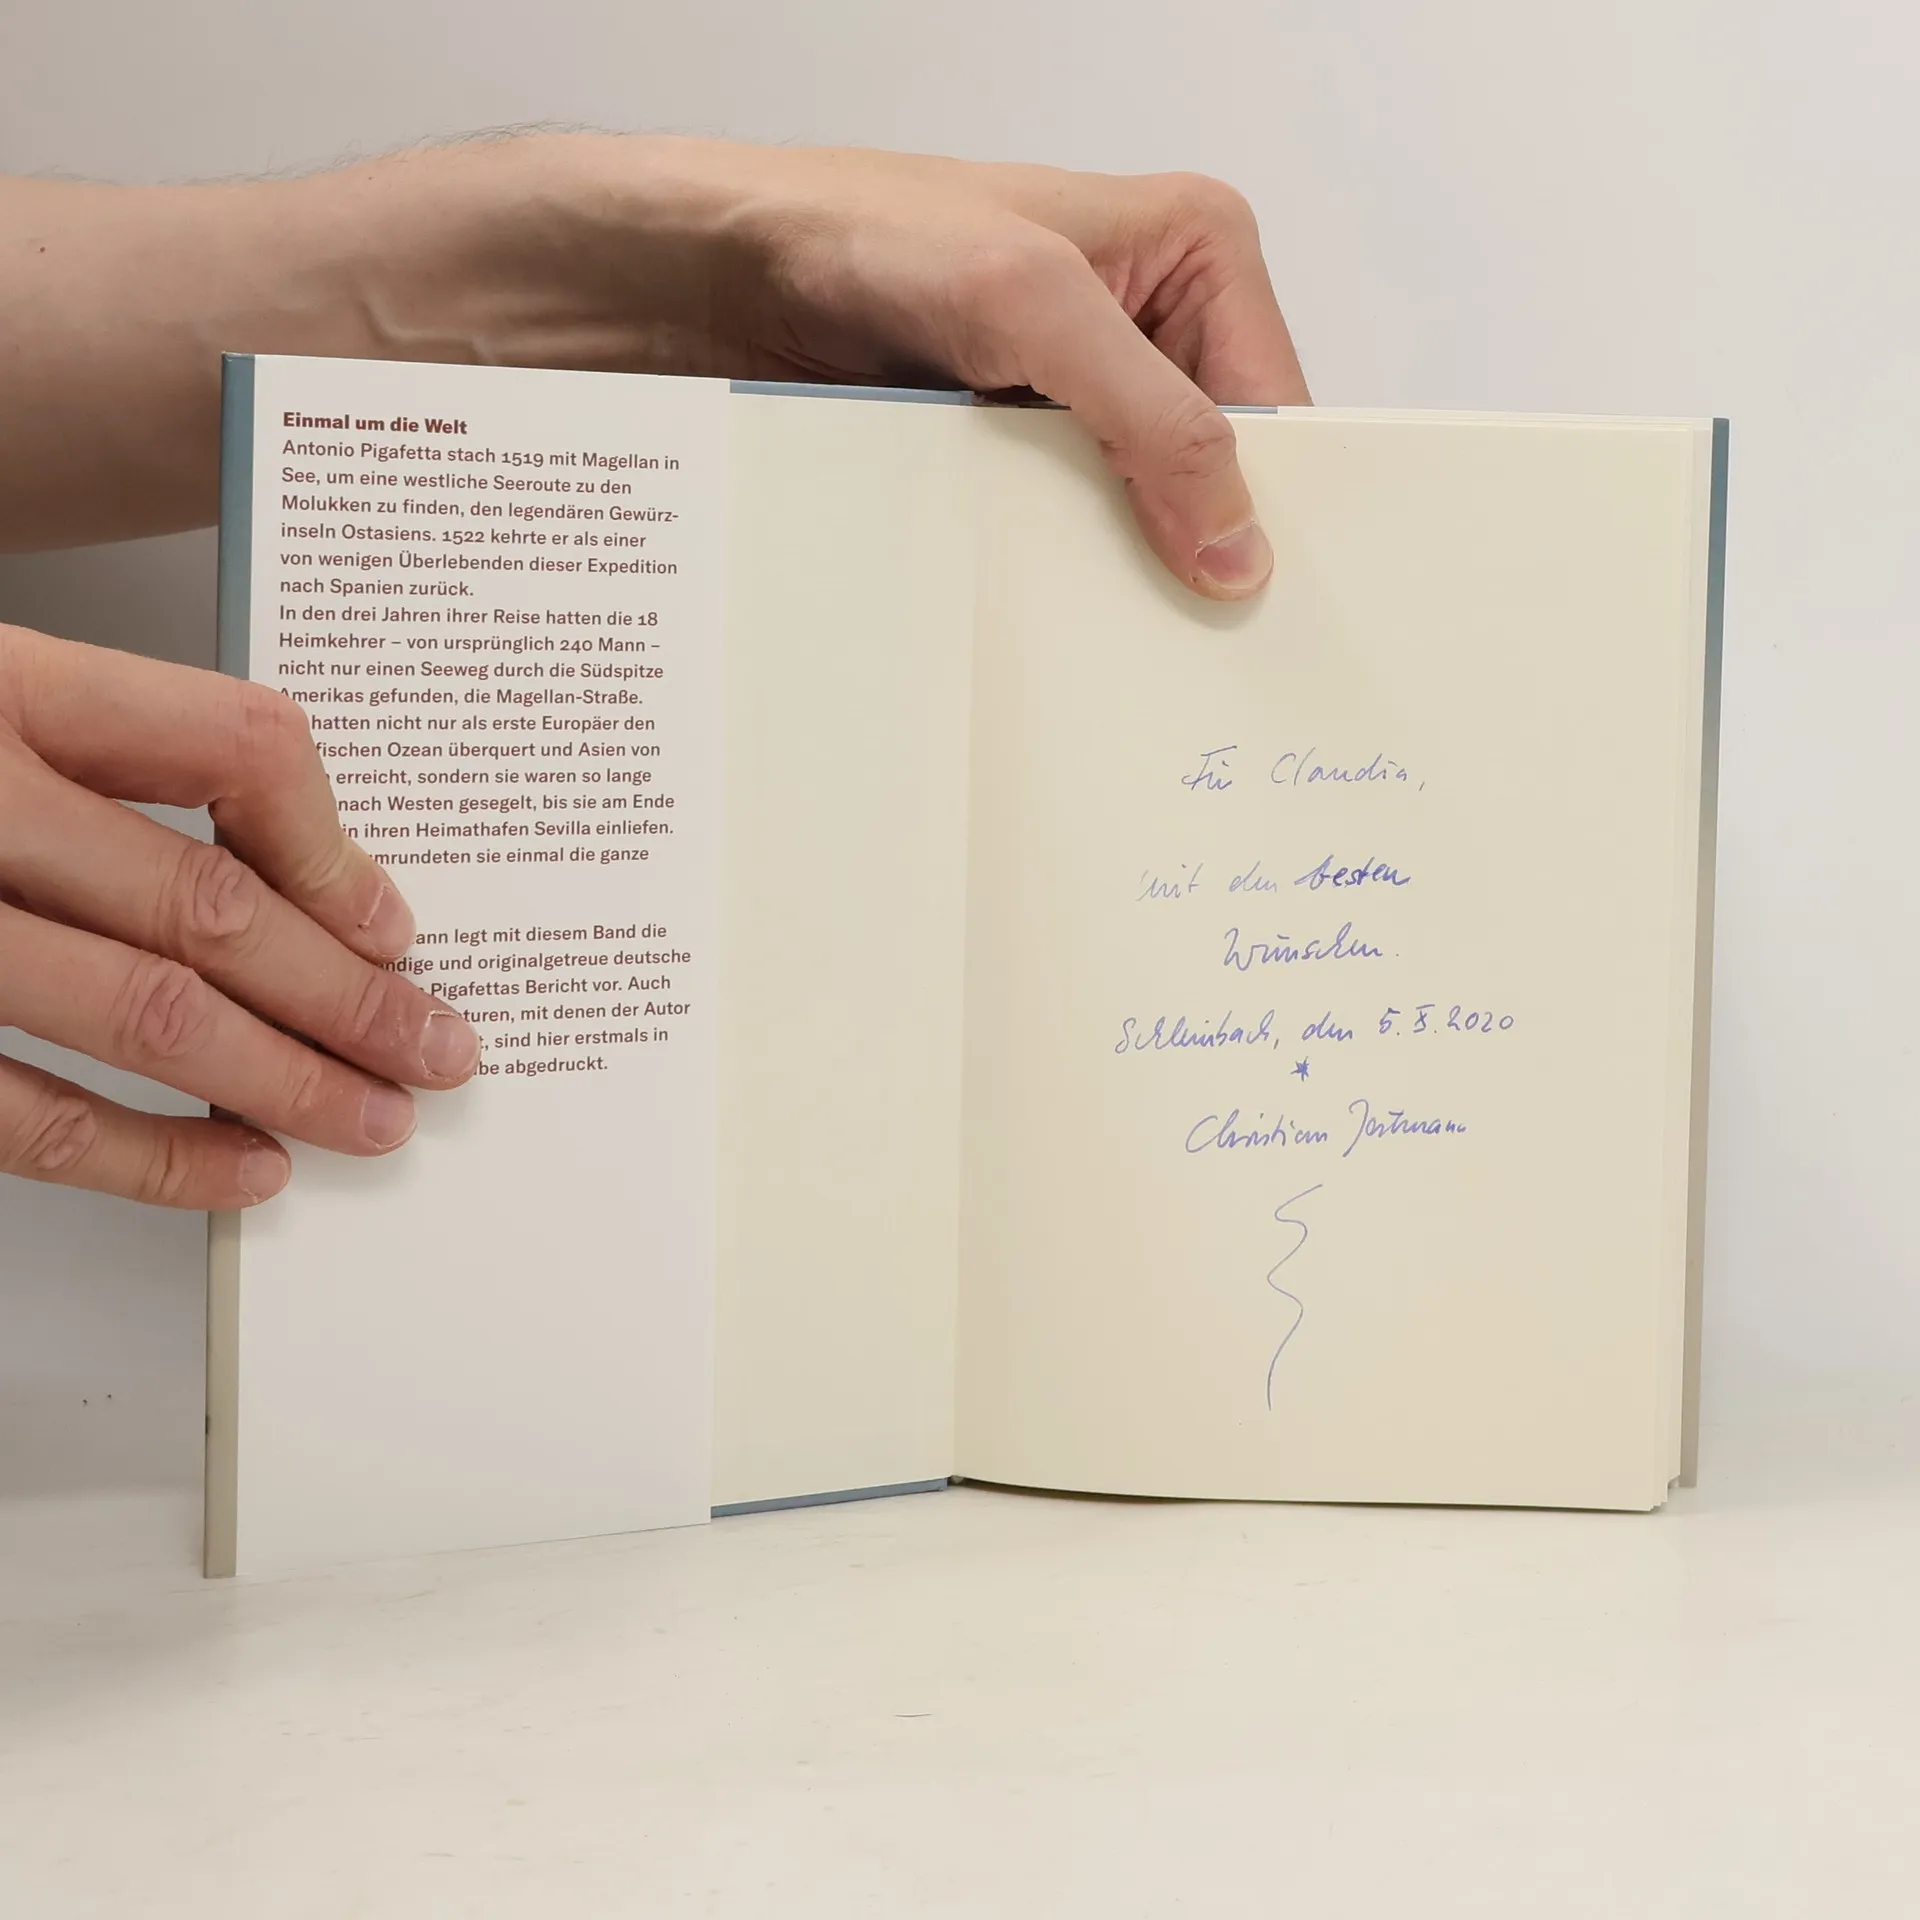 Einmal um die Welt
Antonio Pigafetta stach 1519 mit Magellan in
See, um eine westliche Seeroute zu den
Molukken zu finden, den legendären Gewürz-
inseln Ostasiens. 1522 kehrte er als einer
von wenigen Überlebenden dieser Expedition
nach Spanien zurück.
In den drei Jahren ihrer Reise hatten die 18
Heimkehrer – von ursprünglich 240 Mann –
nicht nur einen Seeweg durch die Südspitze
Amerikas gefunden, die Magellan-Straße.
hatten nicht nur als erste Europäer den
fischen Ozean überquert und Asien von
erreicht, sondern sie waren so lange
nach Westen gesegelt, bis sie am Ende
in ihren Heimathafen Sevilla einliefen.
mrundeten sie einmal die ganze
ann legt mit diesem Band die
ndige und originalgetreue deutsche
Pigafettas Bericht vor. Auch
turen, mit denen der Autor
t, sind hier erstmals in
be abgedruckt.
Für Claudia,
mit den besten
Wünschen.
Schleinbach, den 5. X. 2020
*
Christian Jostmann